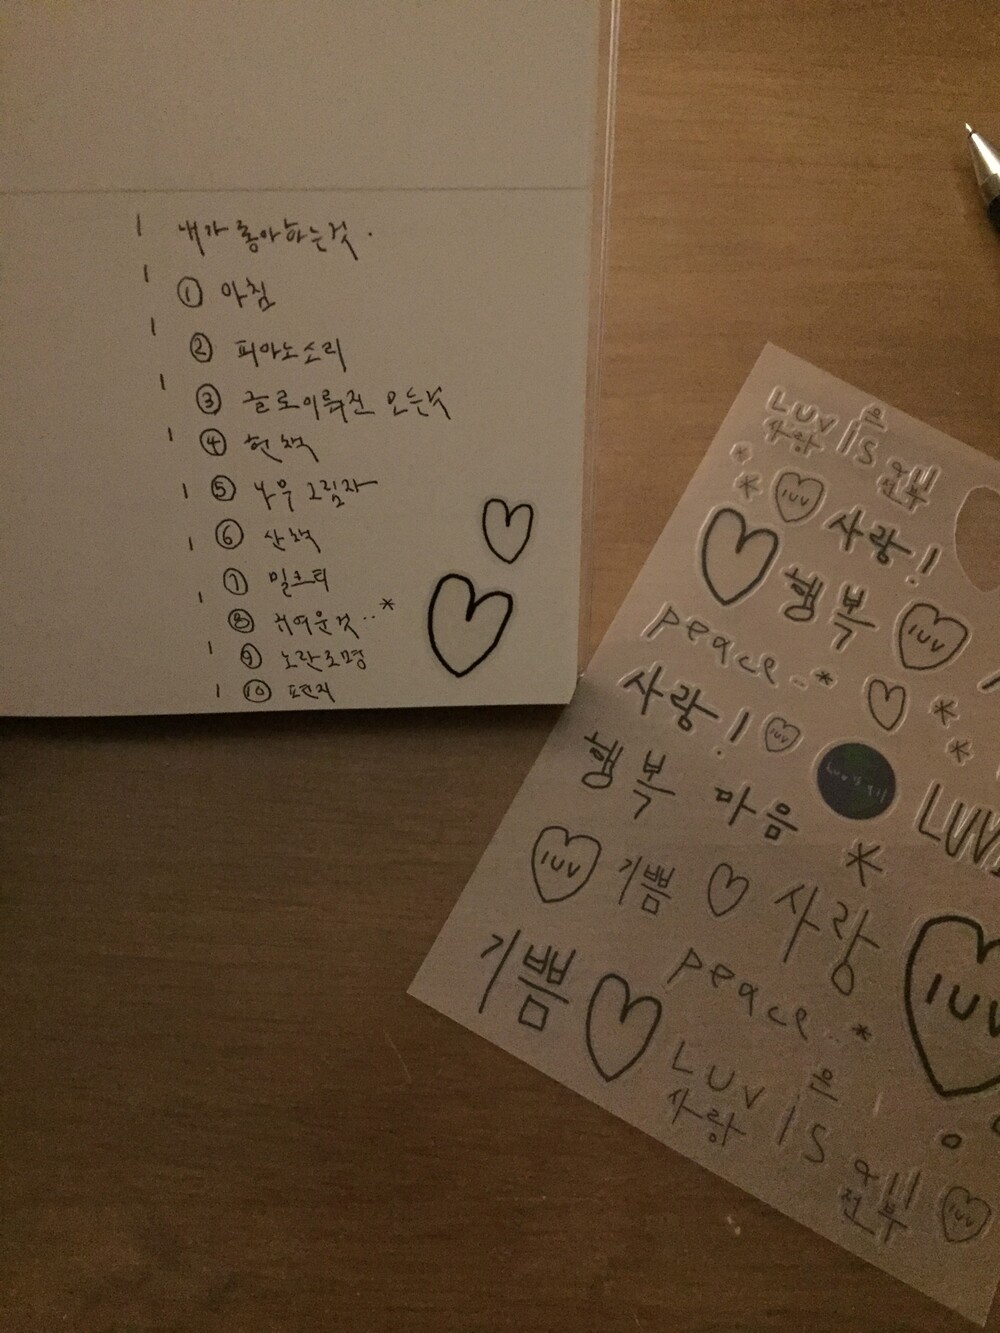 내가 좋아하는것.
① 아침
② 피아노소리
③ 글로이뤄진 모든것
④ 헌책
⑤ 나무 그림자
⑥ 산책
⑦ 밀크티
⑧ 귀여운것..*
⑨ 노란조명
⑩ 편지
Luv is all
사랑 은 전부
luv
사랑!
행복
luv
peace..*
사랑!
luv
행복 마음
Luv is all
LUV
luv
기쁨
사랑
기쁨
peace..*
luv
Luv is all
사랑 은 전부
luv